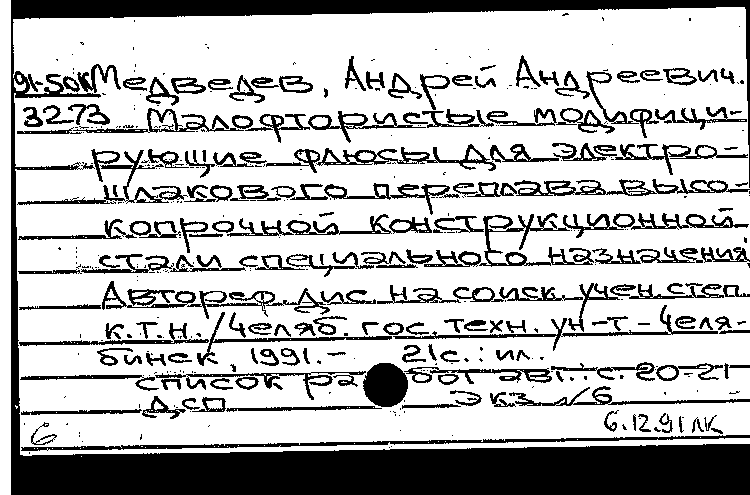 91-50K Медведев, Андрей Андреевич.
3273 Малофтористые модифици-
рующие флюсы для электро-
шлакового переплава высо-
копрочной конструкционной
стали специального назначения:
Автореф. дис. на соиск. учен. степ.
к.т.н. / Челяб. гос. техн. ун-т - Челя-
бинск, 1991. - 21с.: ил..
список работ авт.: с. 20-21
Дсп Экз №6
6 6.12.91 ЛК